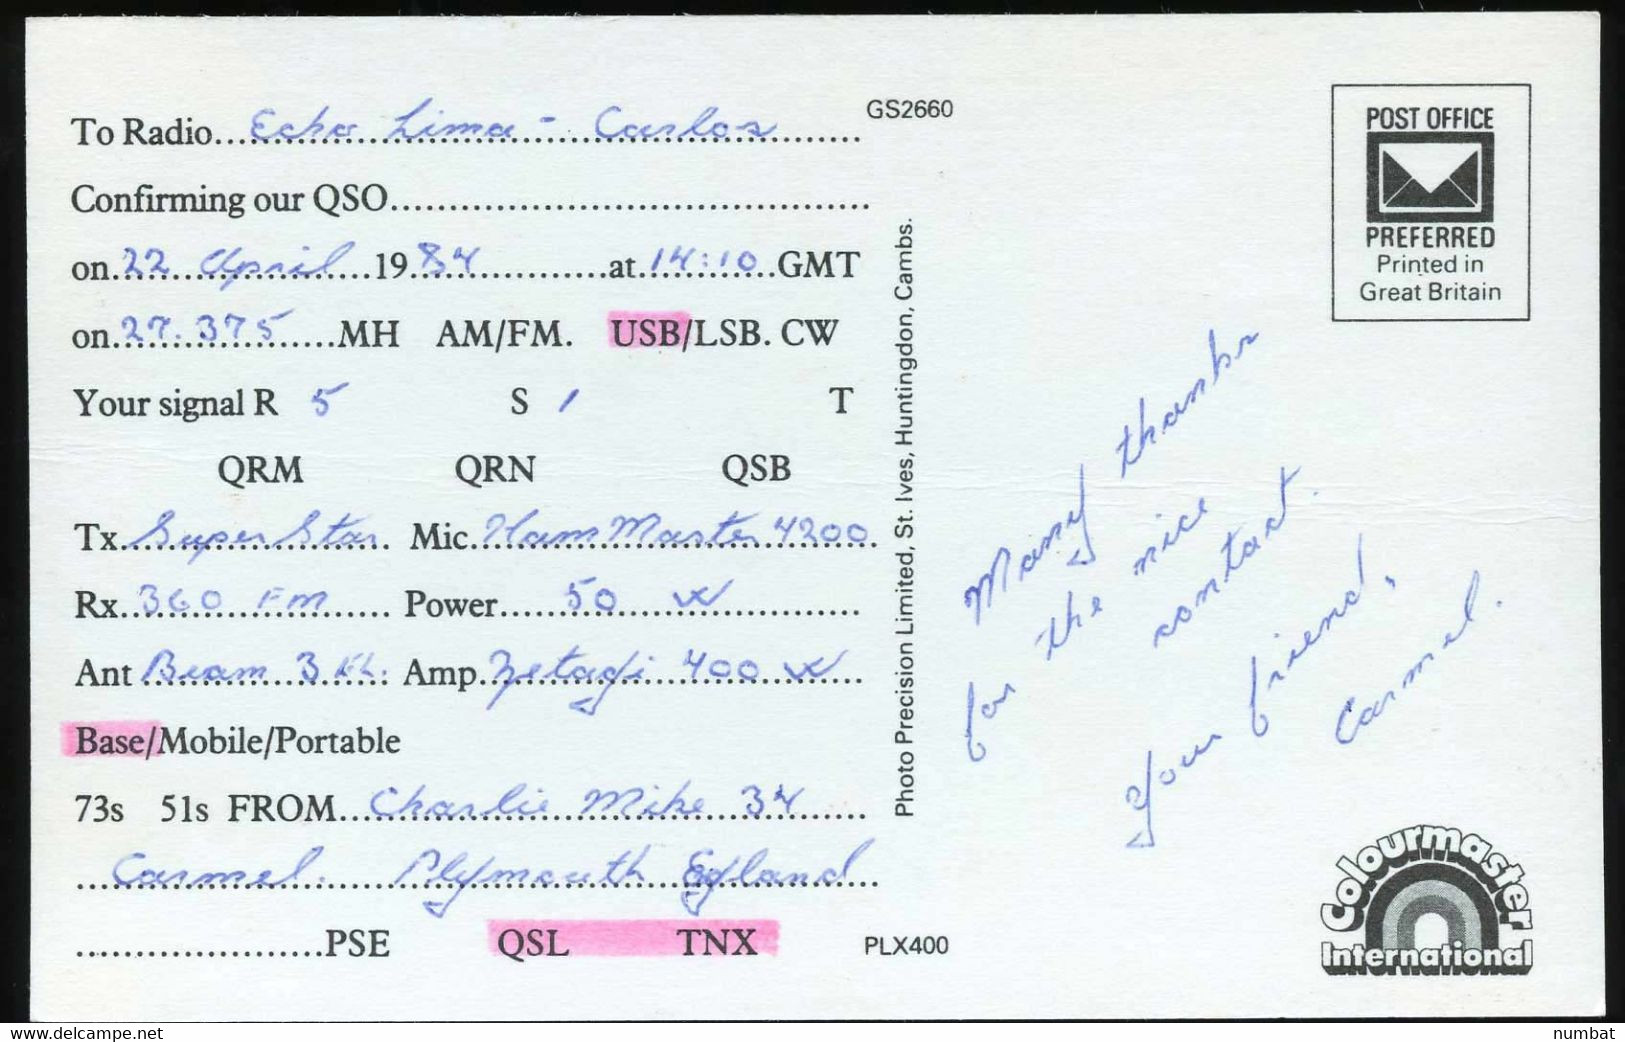 To Radio...Echo Lima - Carlos
Confirming our QSO
on 22 April 1984 at 14:10 GMT
on 27.375 MH AM/FM. USB/LSB. CW
Your signal R 5 S 1 T
QRM QRN QSB
Tx Super Star Mic Ham Master 4200
Rx 360 FM Power 50 W
Ant Beam 3 EL. Amp Zetagi 400 W
Base/Mobile/Portable
73s 51s FROM Charlie Mike 34
Carmel. Plymouth Egland
PSE QSL TNX
GS2660
Photo Precision Limited, St. Ives, Huntingdon, Cambs.
PLX400
POST OFFICE
PREFERRED
Printed in
Great Britain
Many thanks
for the nice
contact.
Your friend,
Carmel.
Colourmaster
International
www.delcampe.net
numbat